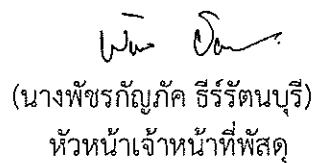 (นางพัชรกัญภัค ธีร์รัตนบุรี)
หัวหน้าเจ้าหน้าที่พัสดุ